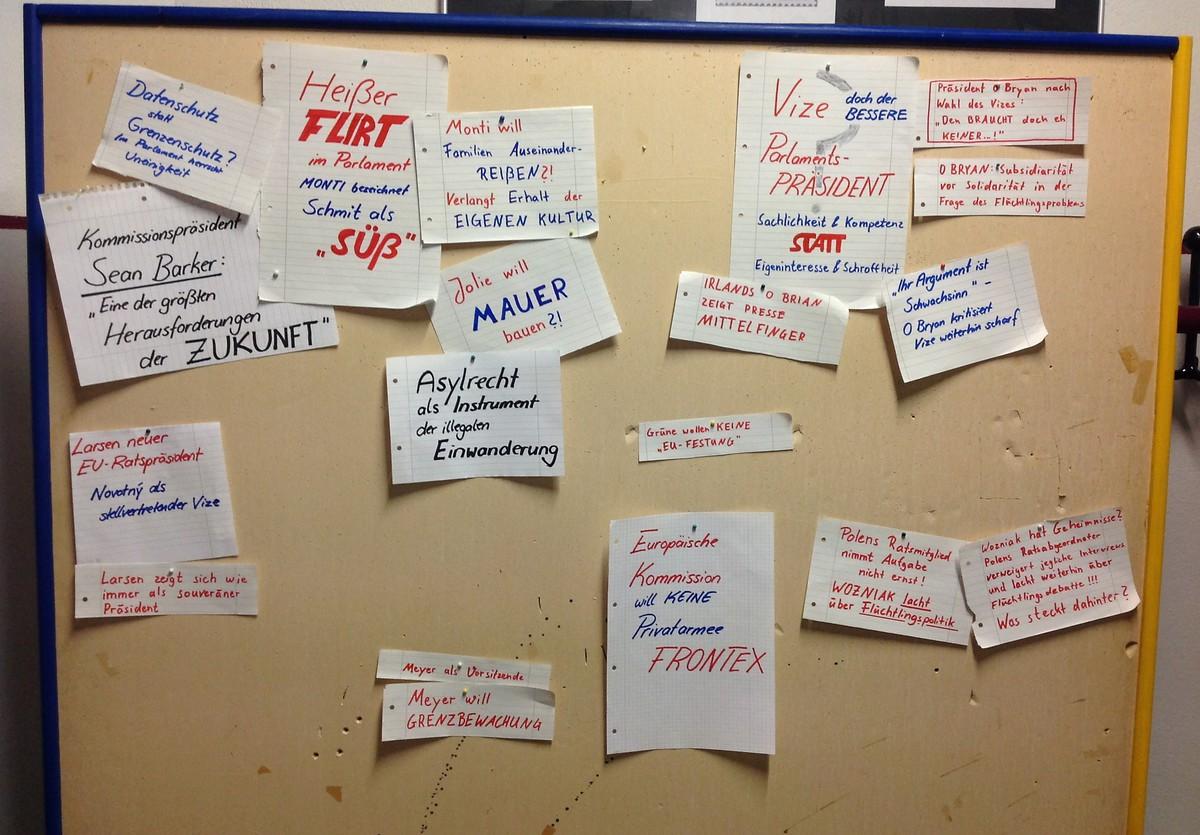 Datenschutz
statt
Grenzenschutz?
Im Parlament herrscht
Uneinigkeit
Kommissionspräsident
Sean Barker:
„Eine der größten
Herausforderungen
der ZUKUNFT"
Heißer
FLIRT
im Parlament
MONTI bezeichnet
Schmit als
„SÜß"
Monti will
Familien Auseinander-
REIßEN?!
Verlangt Erhalt der
EIGENEN KULTUR
Jolie will
MAUER
bauen?!
Asylrecht
als Instrument
der illegalen
Einwanderung
Vize doch der
BESSERE
Parlaments-
PRÄSIDENT ?
Sachlichkeit & Kompetenz
STATT
Eigeninteresse & Schroffheit
Präsident O Bryan nach
Wahl des Vizes:
„Den BRAUCHT doch eh
KEINER...!"
O BRYAN: Subsidiarität
vor Solidarität in der
Frage des Flüchtlingsproblems
IRLANDS O BRIAN
ZEIGT PRESSE
MITTELFINGER
„Ihr Argument ist
Schwachsinn" -
O Bryan kritisiert
Vize weiterhin scharf
Grüne wollen KEINE
„EU-FESTUNG"
Larsen neuer
EU-Ratspräsident
Novotný als
stellvertretender Vize
Larsen zeigt sich wie
immer als souveräner
Präsident
Meyer als Vorsitzende
Meyer will
GRENZBEWACHUNG
Europäische
Kommission
will KEINE
Privatarmee
FRONTEX
Polens Ratsmitglied
nimmt Aufgabe
nicht ernst!
WOZNIAK lacht
über Flüchtlingspolitik
Wozniak hat Geheimnisse?
Polens Ratsabgeordneter
verweigert jegliche Interviews
und lacht weiterhin über
Flüchtlingsdebatte!!!
Was steckt dahinter?